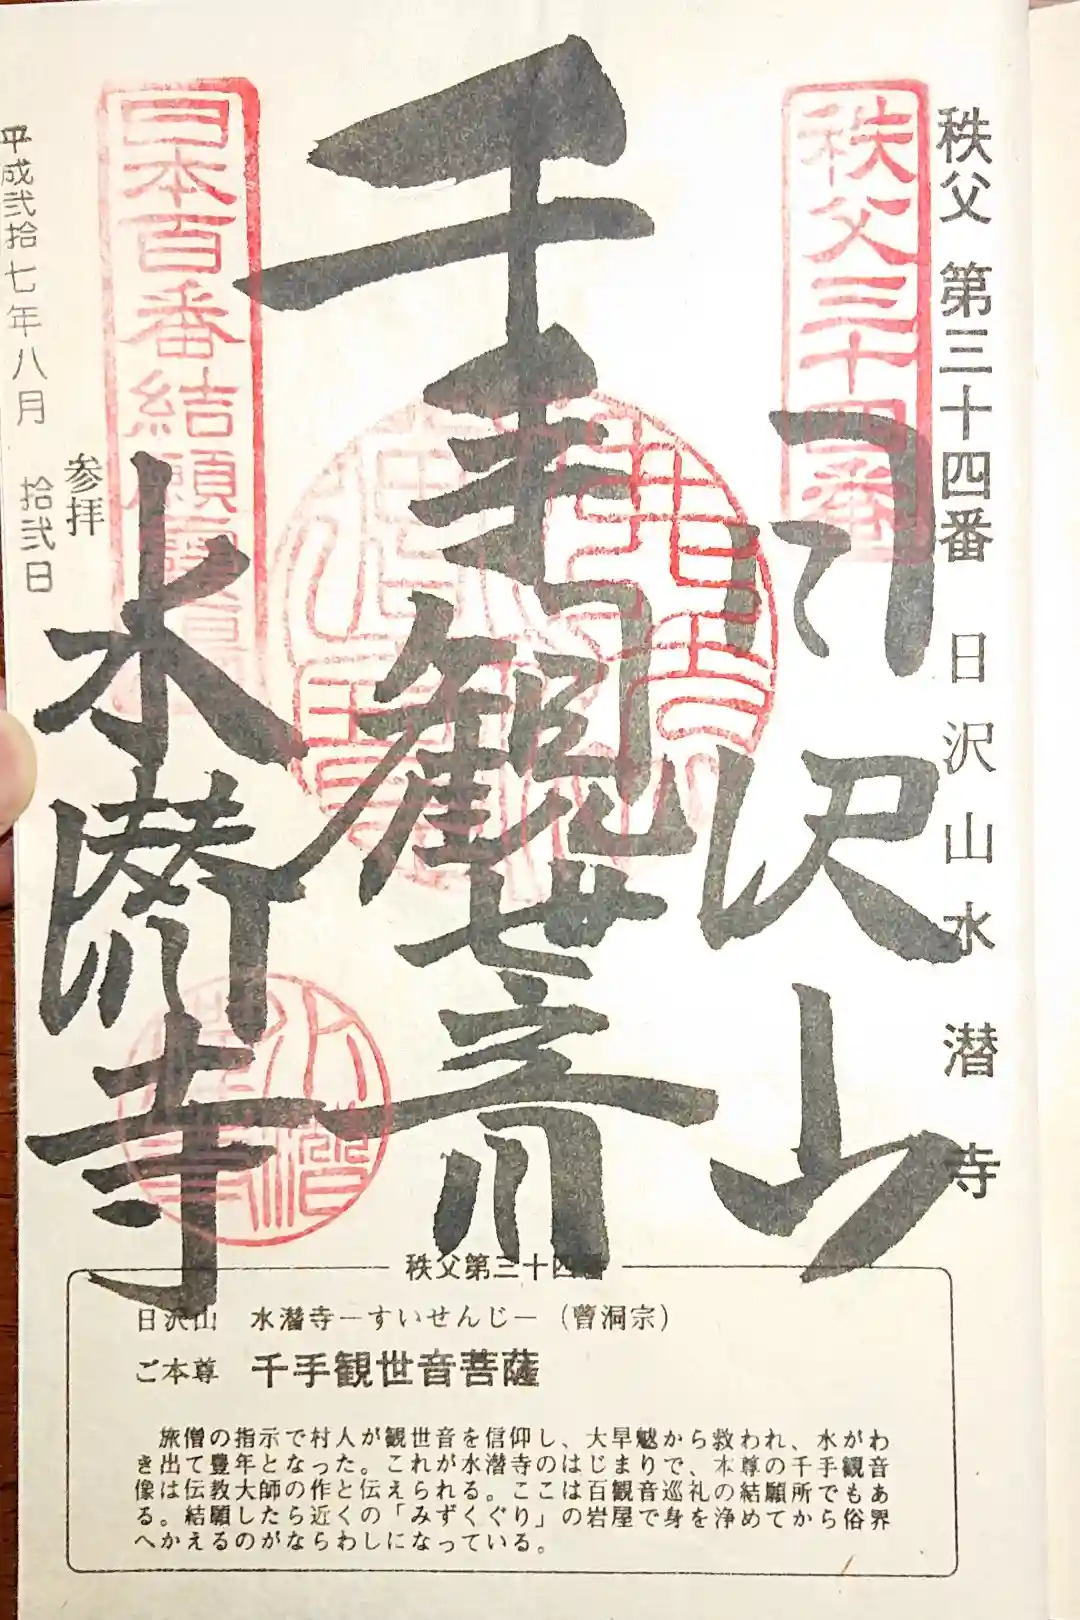 秩父 第三十四番 日沢山水潜寺
秩父三十四番
日沢山
千手観世音
日本百番結願
水潜寺
参拝
平成弐拾七年八月 拾弐日
秩父第三十四番
日沢山 水潜寺－すいせんじ－(曹洞宗)
ご本尊 千手観世音菩薩
旅僧の指示で村人が観世音を信仰し、大旱魃から救われ、水がわ
き出て豊年となった。これが水潜寺のはじまりで、本尊の千手観音
像は伝教大師の作と伝えられる。ここは百観音巡礼の結願所でもあ
る。結願したら近くの「みずくぐり」の岩屋で身を浄めてから俗界
へかえるのがならわしになっている。